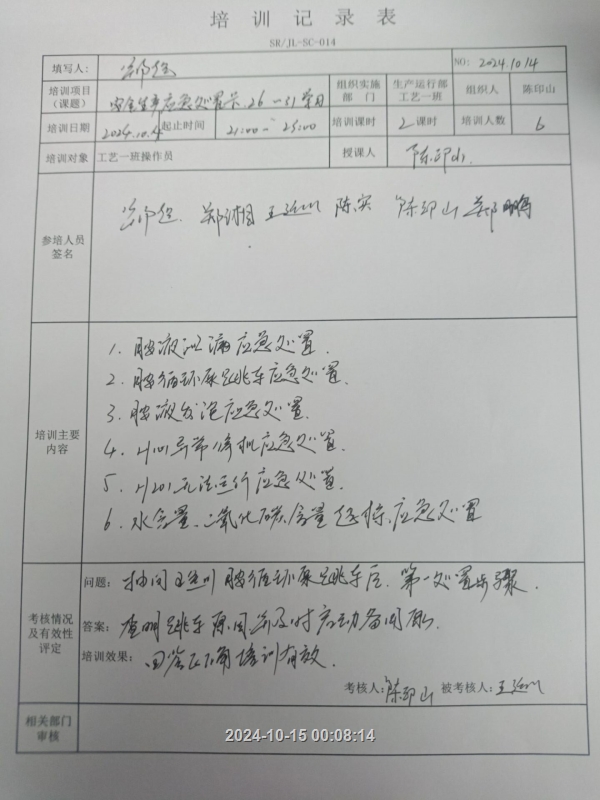 培训记录表
SR/JL-SC-014
填写人: NO: 2024.10.14
培训项目(课题) 安全生产应急处置卡.26-31条目 组织实施部门 生产运行部工艺一班 组织人 陈印山
培训日期 2024.10.14 起止时间 21:00- 23:00 培训课时 2课时 培训人数 6
培训对象 工艺一班操作员 授课人 陈印山
参培人员签名 陈实 陈印山 郑鹏
培训主要内容
1. 胺液泄漏应急处置.
2. 胺循环泵跳车应急处置.
3. 胺液发泡应急处置.
4. 异常停机应急处置.
5. H201无法运行应急处置.
6. 水含量、二氧化碳含量超标应急处置
考核情况及有效性评定
问题: 抽问 胺循环泵跳车后,第一处置步骤.
答案: 查明跳车原因,并及时启动备用
培训效果: 回答正确培训有效.
考核人: 陈印山 被考核人:
相关部门审核
2024-10-15 00:08:14